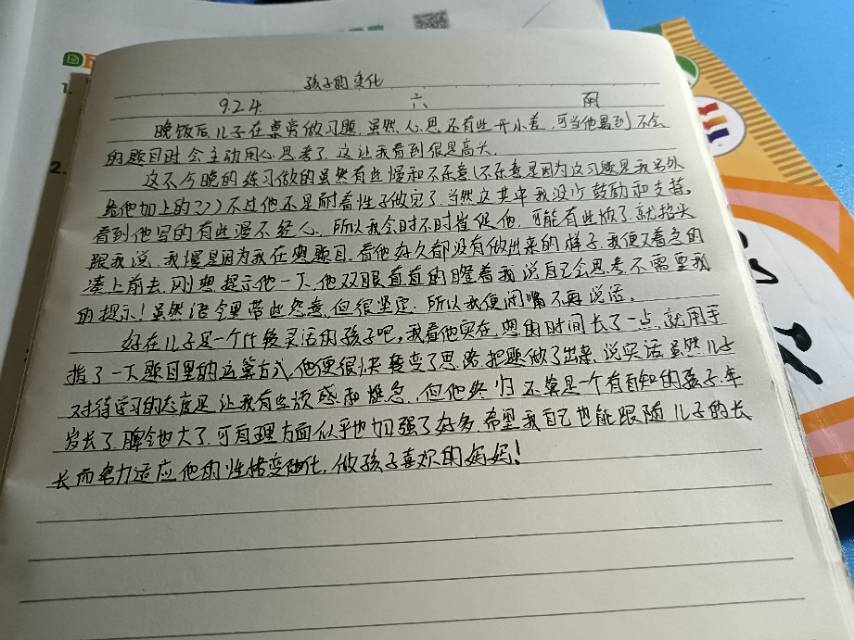 孩子的变化
9.24. 六 雨
晚饭后,儿子在桌旁做习题,虽然人心思还有些开小差,可当他遇到不会
的题目时会主动用心思考了,这让我看到很是高兴。
这不今晚的练习做的虽然有些慢和不乐意(不乐意是因为这习题是我另外
给他加上的??)不过他还是耐着性子做完了,当然这其中我没少鼓励和支持。
看到他写的有些漫不经心,所以我会时不时催促他,可能有些烦了,就抬头
跟我说,我慢是因为我在想题目,看他好久都没有做出来的样子,我便又着急的
凑上前去,刚想提示他一下,他双眼直直的瞪着我说自己会思考,不需要我
的提示!虽然语气里带些怨意,但很坚定,所以我便闭嘴不再说话。
好在儿子是一个比较灵活的孩子吧,我看他实在想的时间长了一点,就用手
指了一下题目里的运算方式,他便很快转变了思路,把题做了出来,说实话,虽然儿子
对待学习的态度是让我有些烦感和焦急,但他终归不算是一个有自知的孩子,年
岁长了,脾气也大了,可自理方面似乎也加强了好多,希望我自己也能跟随儿子的长
长而努力适应他的性格变化,做孩子喜欢的妈妈!